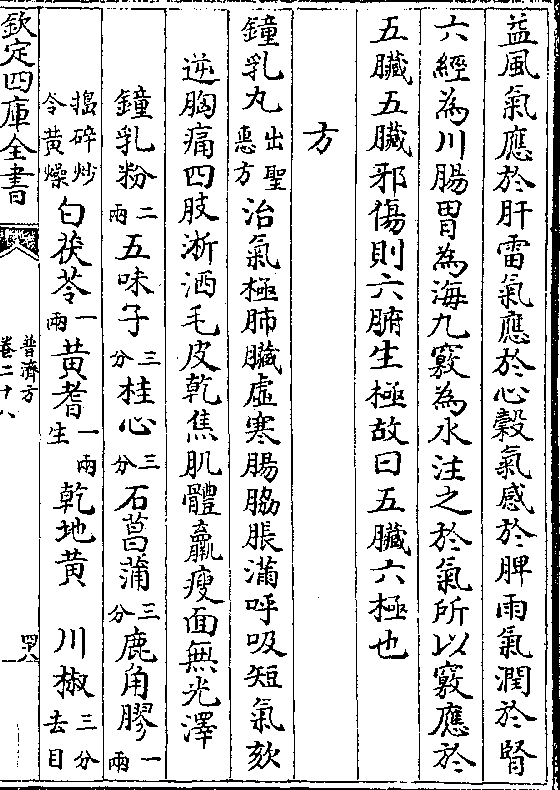 益風氣應於肝雷氣應於心穀氣感於脾雨氣潤於腎
六經為川腸胃為海九竅為水注之於氣所以竅應於
五臟五臟邪傷則六腑生極故曰五臟六極也
方
鐘乳丸出聖惠方治氣極肺臟虛寒腸脇脹滿呼吸短氣欬
逆胸痛四肢淅洒毛皮乾焦肌體羸瘦面無光澤
鐘乳粉二兩五味子三分桂心三分石菖蒲三分鹿角膠一兩
搗碎炒令黃燥白茯苓一兩黃耆一兩生乾地黃川椒三分去目
欽定四庫全書
普濟方
卷二十八
四八